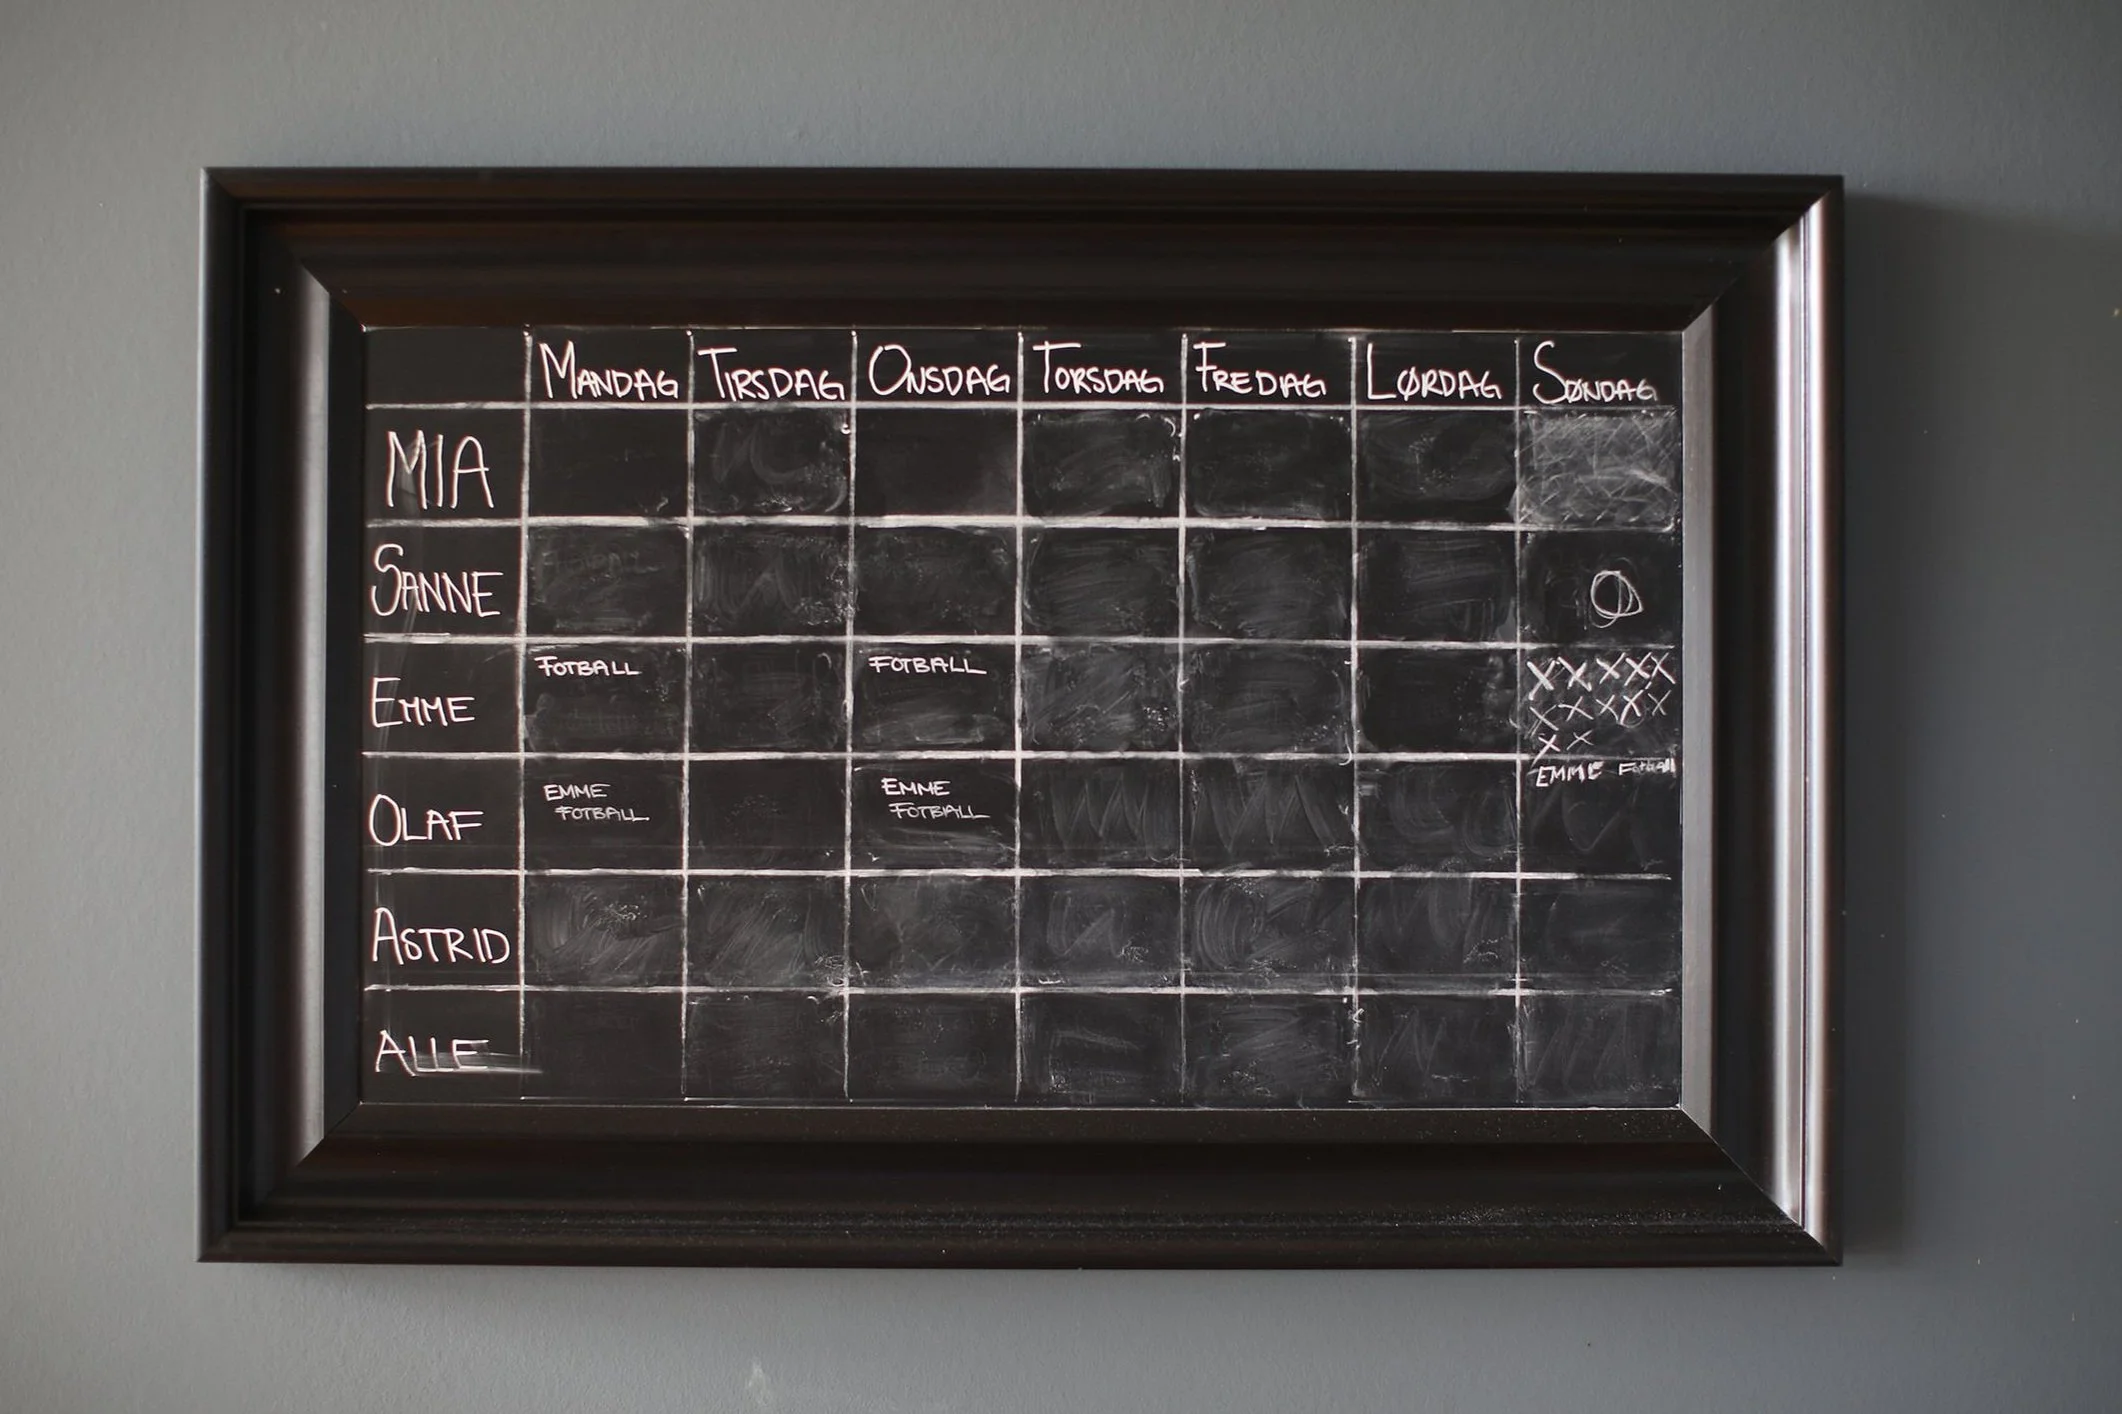 MANDAG TIRSDAG ONSDAG TORSDAG FREDAG LØRDAG SØNDAG
MIA
SANNE
EMME FOTBALL FOTBALL XXXXX
XXXXX
XX
OLAF EMME FOTBALL EMME FOTBALL EMME FOTBALL
ASTRID
ALLE